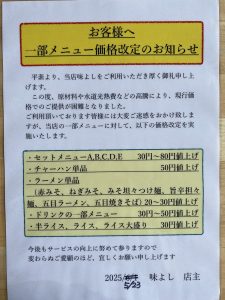 お客様へ
一部メニュー価格改定のお知らせ
平素より、当店味よしをご利用いただき厚く御礼申し上
げます。
この度、原材料や水道光熱費などの高騰により、現行価
格でのご提供が困難となりました。
ご利用頂いております皆様には大変ご迷惑をおかけ致しま
すが、当店の一部メニューに対して、以下の価格改定を実
施いたします。
・セットメニューA,B,C,D,E 30円～80円値上げ
・チャーハン単品 50円値上げ
・ラーメン単品
(赤みそ、ねぎみそ、みそ担々つけ麺、旨辛担々
麺、五目ラーメン、五目焼きそば) 20～30円値上げ
・ドリンクの一部メニュー 30円～50円値上げ
・半ライス、ライス、ライス大盛り 30円値上げ
今後もサービスの向上に努めて参りますので
変わらぬご愛顧のほど、宜しくお願い申し上げます
2025/ 味よし 店主
5/23